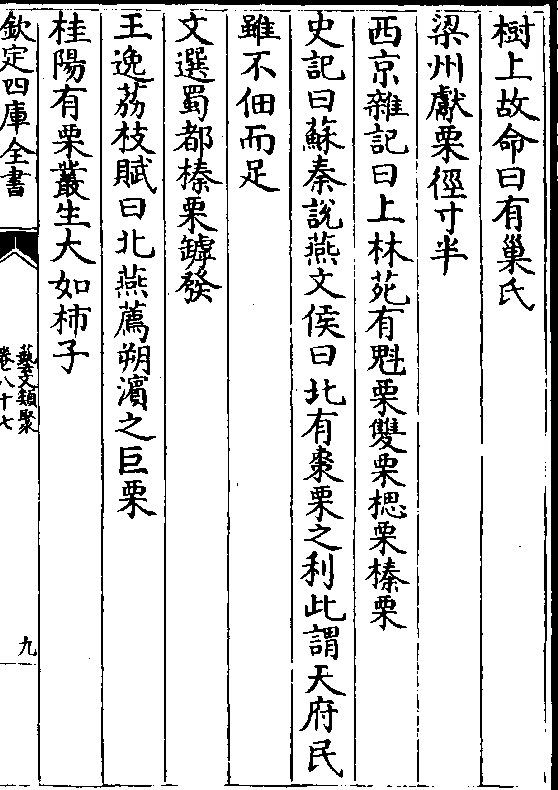 樹上故命曰有巢氏
梁州獻栗徑寸半
西京雜記曰上林苑有魁栗雙栗榛栗
史記曰蘇秦說燕文侯曰北有棗栗之利此謂天府民
雖不佃而足
文選蜀都榛栗罅發
王逸荔枝賦曰北燕薦朔濱之巨栗
桂陽有栗叢生大如柿子
欽定四庫全書
藝文類聚
卷八十七
九